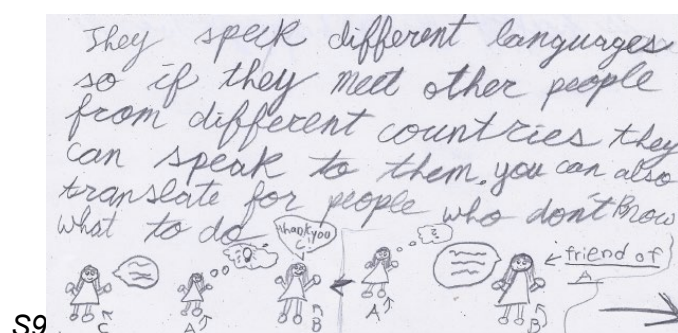 They speek different languages
so if they meet other people
from different countries they
can speak to them. you can also
translate for people who don't know
what to do
thankyou
C!
friend of
A
C
A
B
A
B
S9